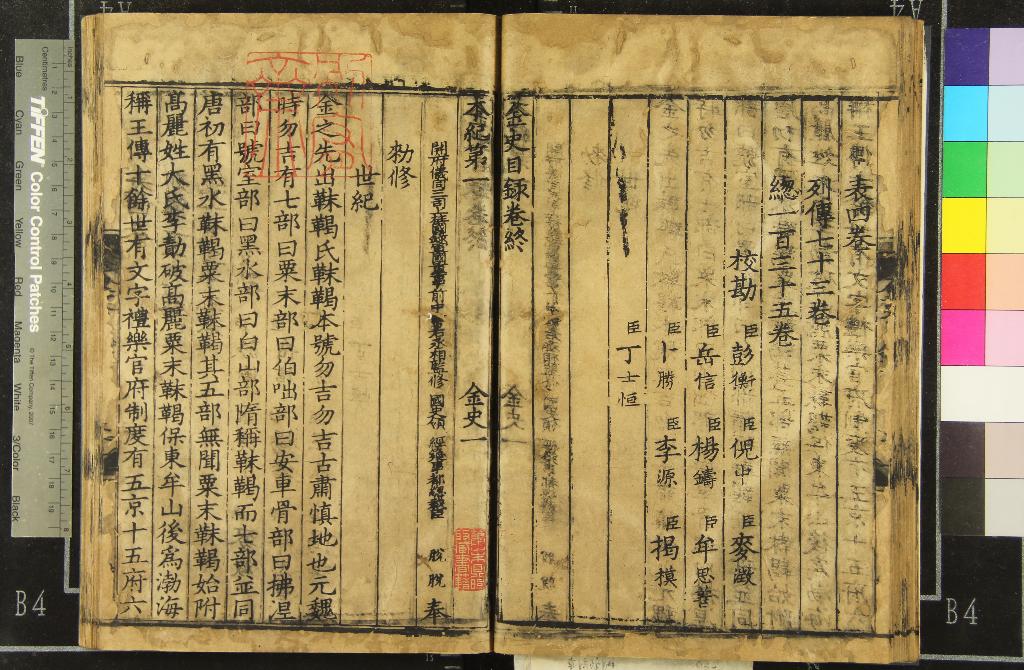 表四卷
列傳七十三卷
總一百三十五卷
校勘 臣彭衡 臣倪中 臣麥澂
臣岳信 臣楊鑄 臣牟思善
臣卜勝 臣李源 臣揭模
臣丁士恒
金史目録卷終
本紀第一 金史一
脫脫 奉
勑修
世紀
金之先出靺鞨氏靺鞨本號勿吉勿吉古肅慎地也元魏
時勿吉有七部曰粟末部曰伯咄部曰安車骨部曰拂涅
部曰號室部曰黑水部曰白山部隋稱靺鞨而七部並同
唐初有黑水靺鞨粟末靺鞨其五部無聞粟末靺鞨始附
髙麗姓大氏李勣破髙麗粟末靺鞨保東牟山後爲渤海
稱王傳十餘世有文字禮樂官府制度有五京十五府六
Inches
Centimetres
TIFFEN Color Control Patches
© The Tiffen Company, 2007
Blue Cyan Green Yellow Red Magenta White 3/Color Black
B4
B4
A4
A4